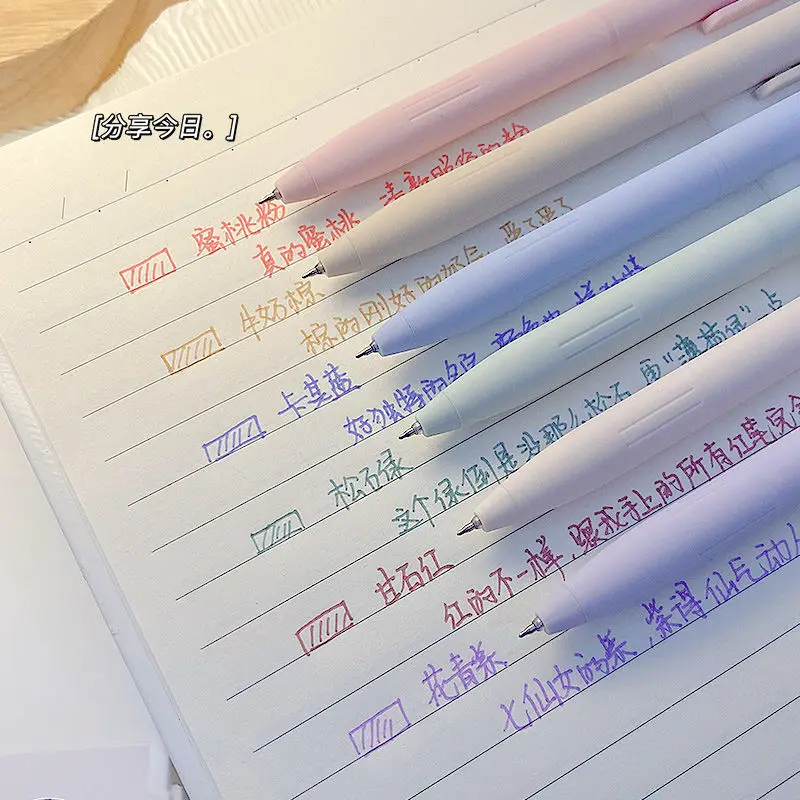 [分享今日。]
蜜桃粉
真的蜜桃
牛奶棕
棕的刚好的奶气
卡其蓝
好独特的
松石绿
这个绿倒是没那么松石
甘石红
红的不一样,跟我手上的所有红笔完全
花青紫
七仙女的紫,紫得仙气动人